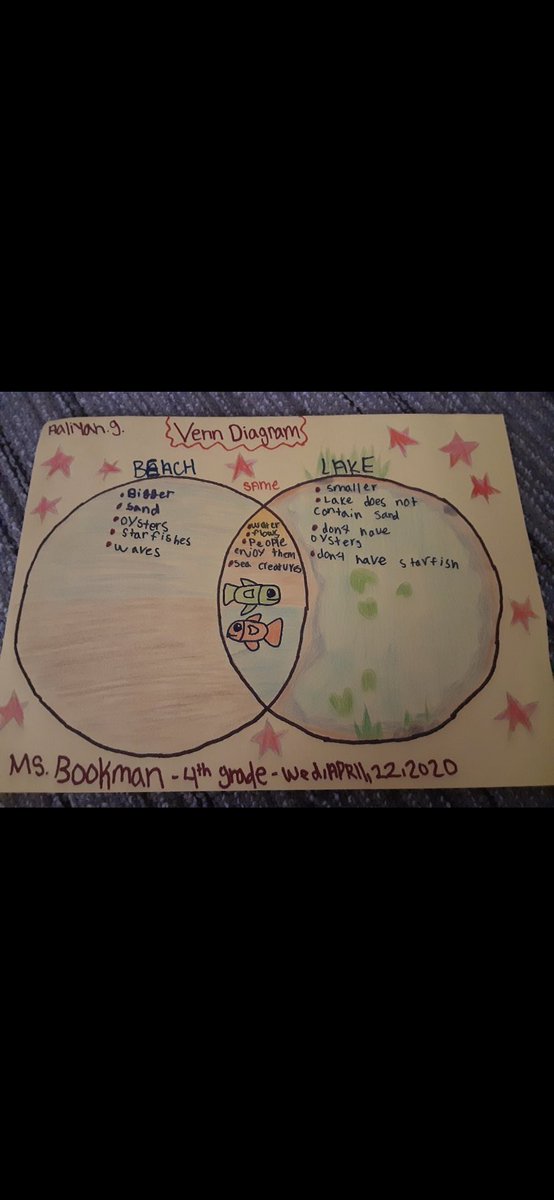 Aaliyah.g.
Venn Diagram
BEACH
• Bigger
• sand
• oysters
• starfishes
• waves
SAME
• water
• flows
• people
enjoy them
• sea creatures
LAKE
• smaller
• Lake does not
contain sand
• dont have
oysters
• dont have starfish
Ms. Bookman - 4th grade - Wed, APRIl, 22, 2020